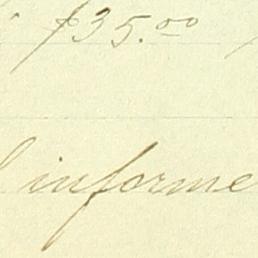 $35.00
informe